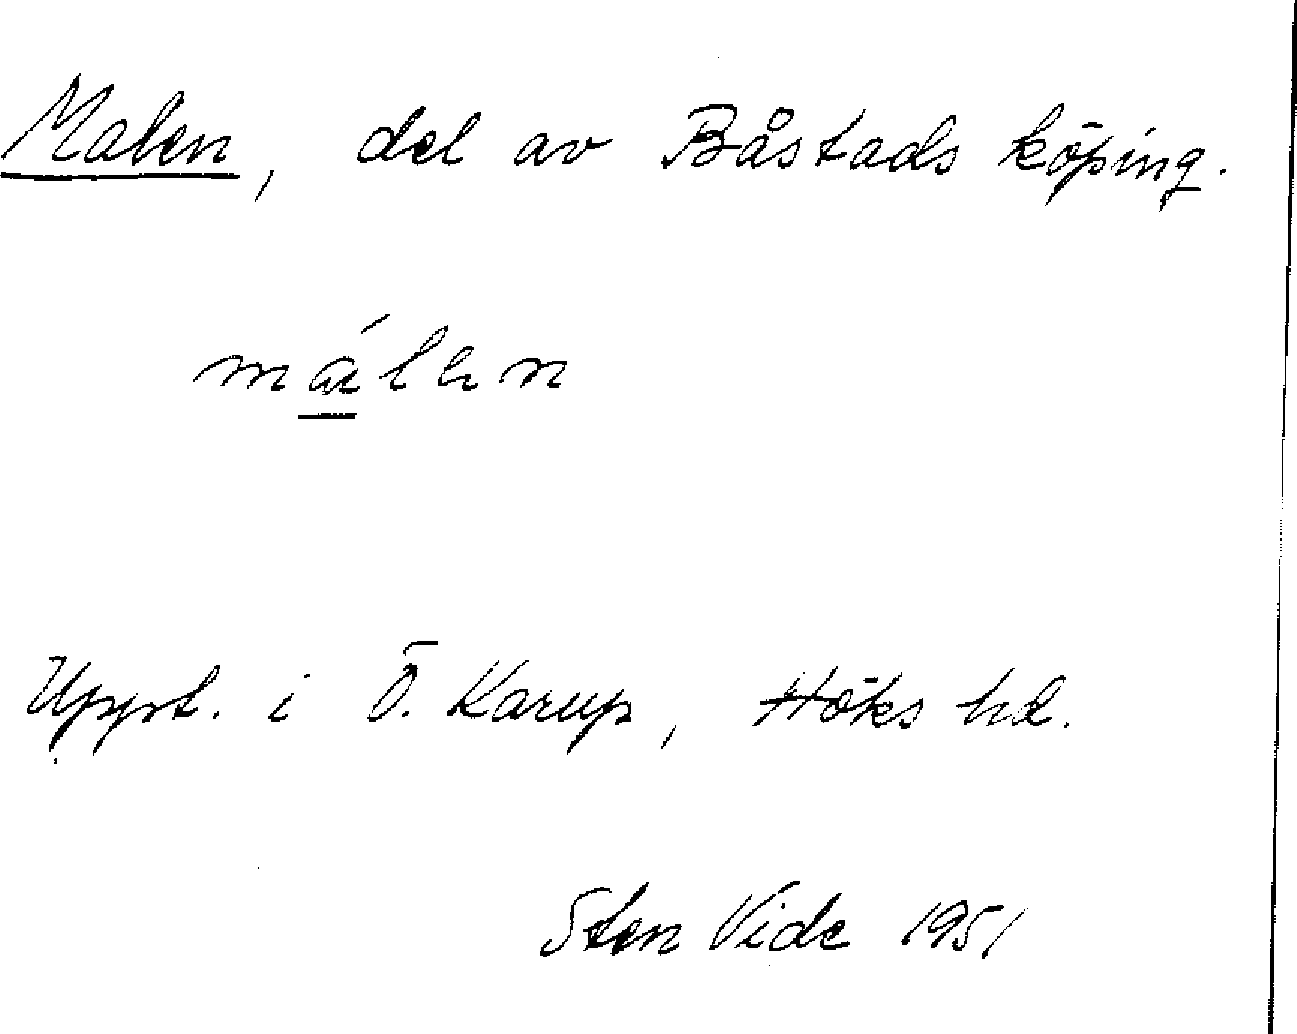 Malen, del av Båstads köping.
málen
Uppt. i Ö. Karup, Höks hd.
Sten Vide 1951